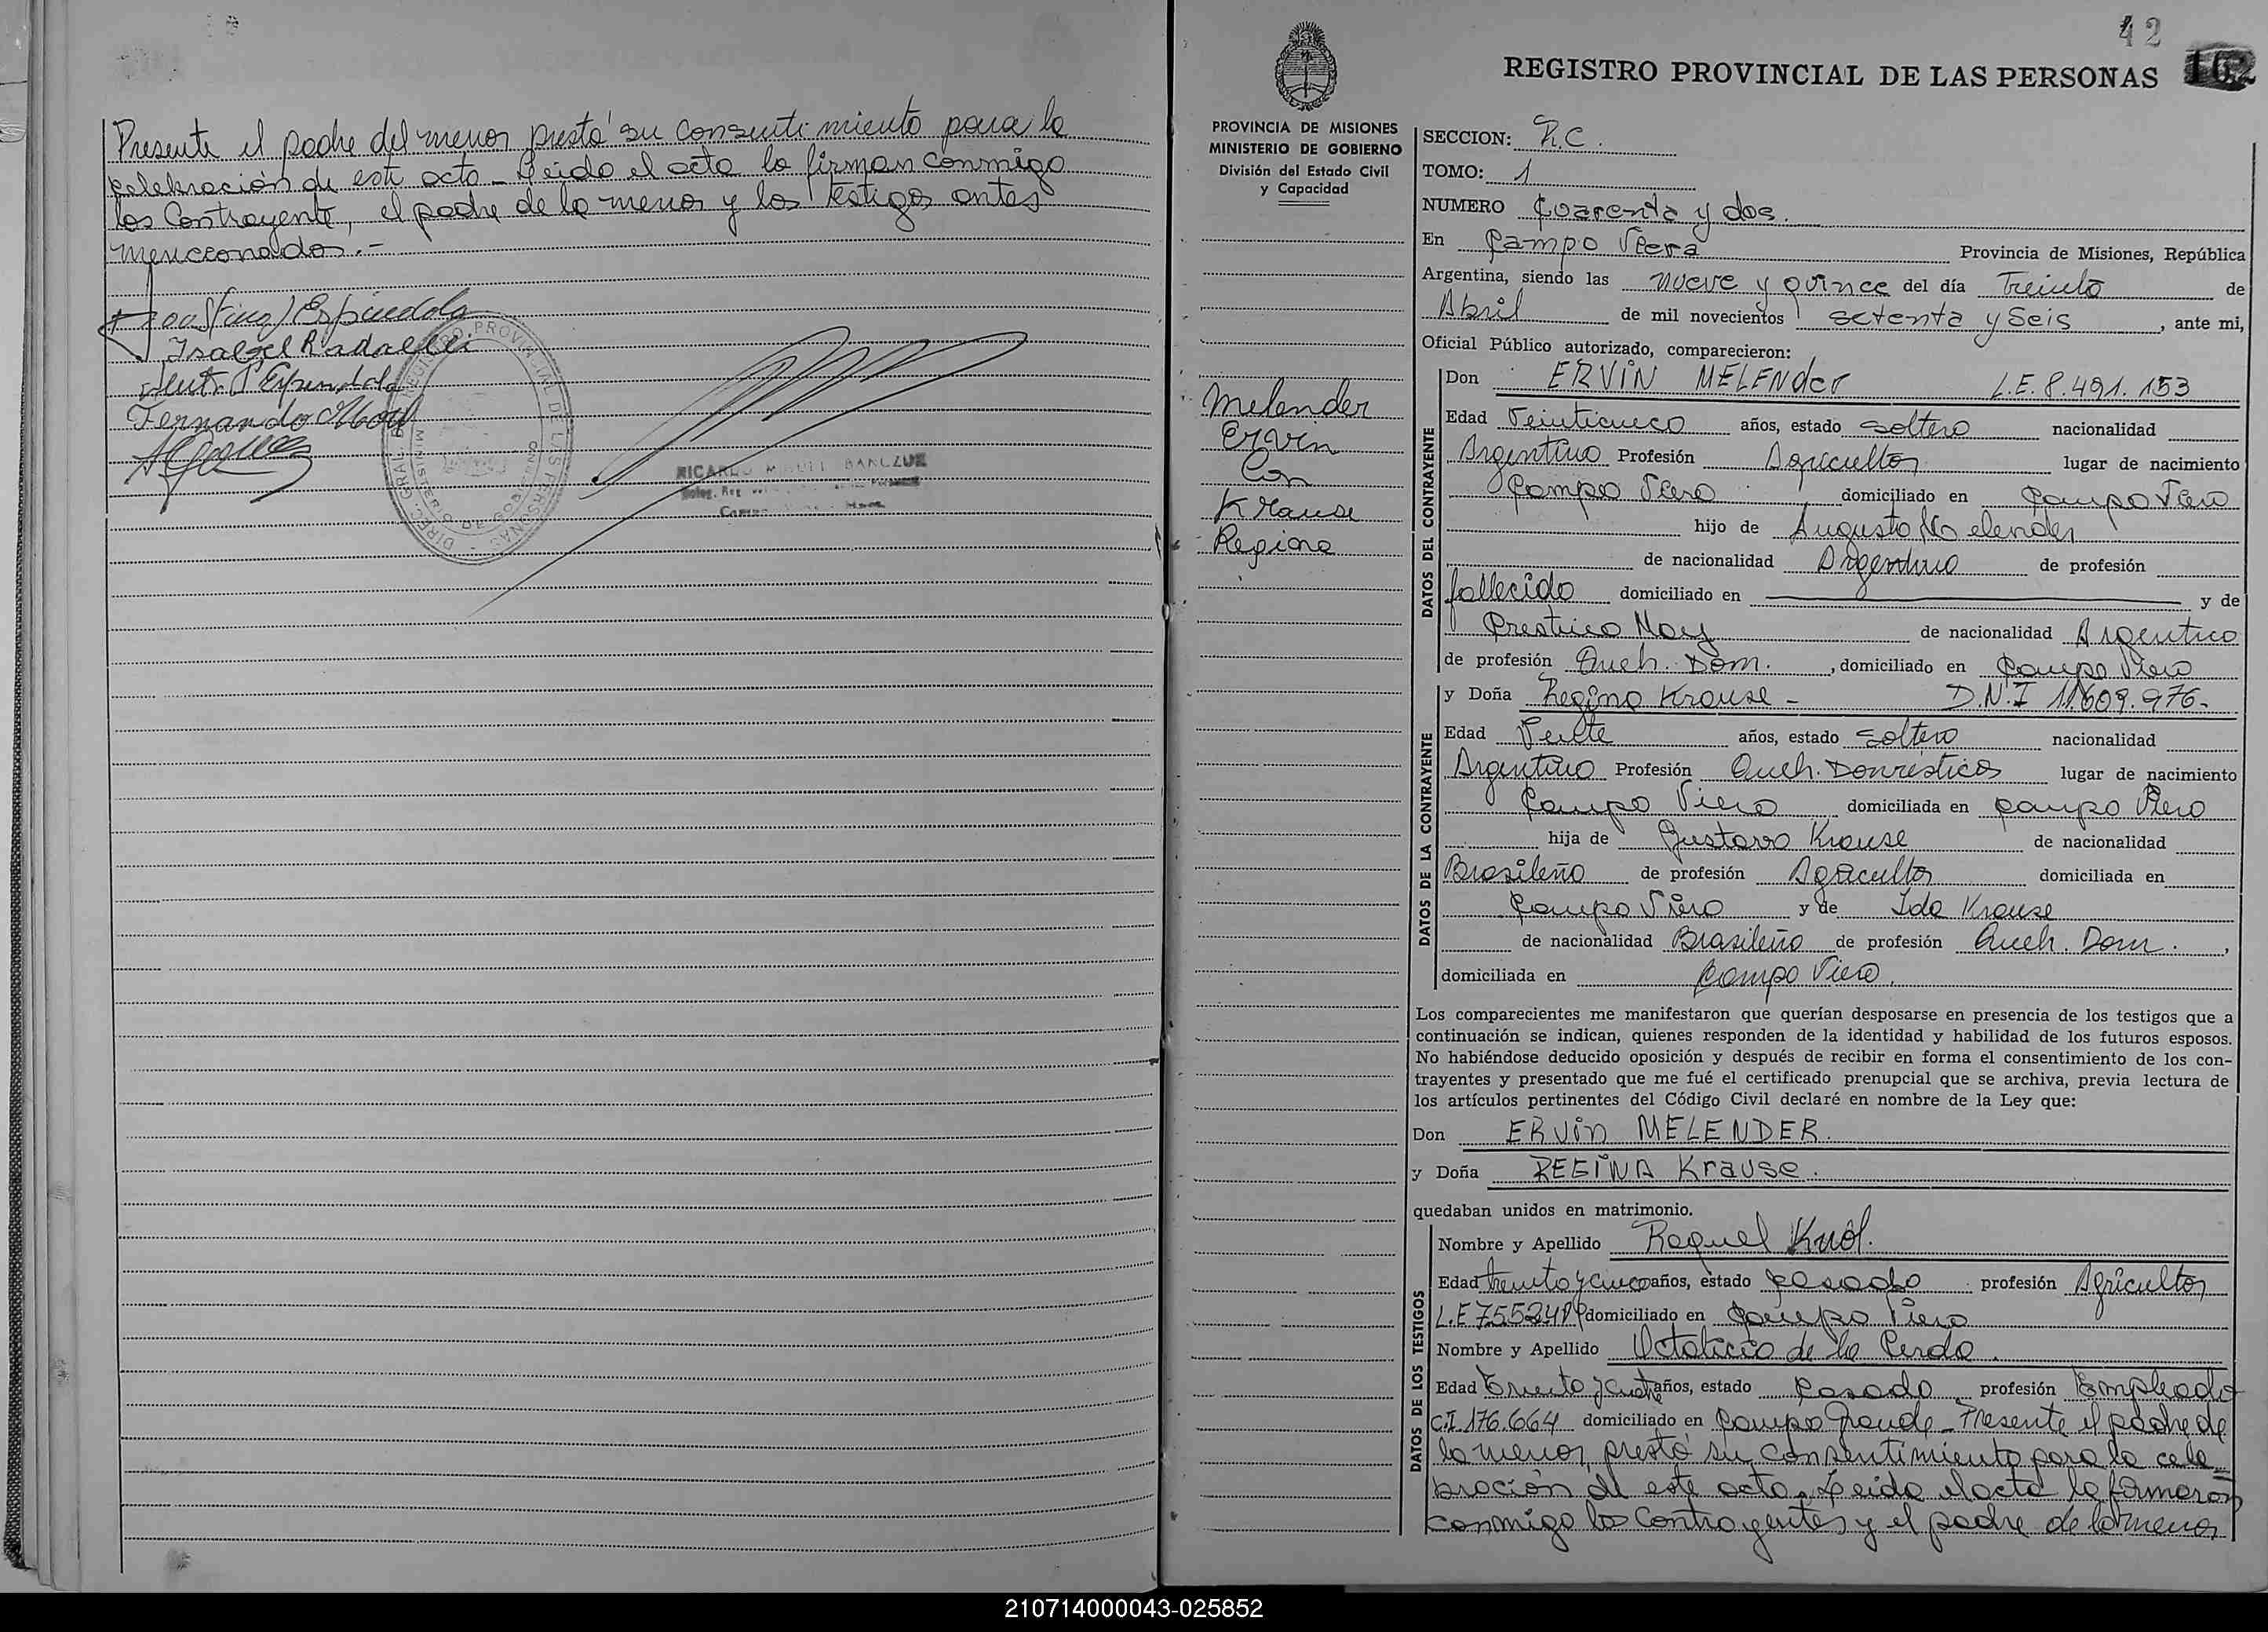 Presente el padre del menor prestó su consentimiento para la
celebración de este acto - Leido el acta la firman conmigo
los Contrayente, el padre de la menor y los testigos antes
mencionados.-
Espindola
Isabel
Espindola
Fernando
DIREC. GRAL. REGISTRO PROVINCIAL DE LAS PERSONAS
MINISTERIO DE GOBIERNO
RICARDO MIGUEL
42
162
REGISTRO PROVINCIAL DE LAS PERSONAS
PROVINCIA DE MISIONES
MINISTERIO DE GOBIERNO
División del Estado Civil
y Capacidad
Melender
Ervin
Con
Krause
Regina
SECCION: R.C.
TOMO: 1
NUMERO Cuarenta y dos.
En Campo Viera Provincia de Misiones, República
Argentina, siendo las nueve y quince del día Treinta de
Abril de mil novecientos setenta y Seis, ante mi,
Oficial Público autorizado, comparecieron:
DATOS DEL CONTRAYENTE
Don ERVIN MELENder L.E. 8.491.153
Edad Veinticinco años, estado soltero nacionalidad
Argentino Profesión Agricultor lugar de nacimiento
Campo Viera domiciliado en Campo Viera
hijo de Augusto Melender
de nacionalidad Argentino de profesión
fallecido domiciliado en y de
de nacionalidad Argentina
de profesión Queh. Dom., domiciliado en Campo Viera
DATOS DE LA CONTRAYENTE
y Doña Regina Krause - D.N.I 11.609.976-
Edad Veinte años, estado soltera nacionalidad
Argentina Profesión Queh. Domésticos lugar de nacimiento
Campo Viera domiciliada en Campo Viera
hija de Gustavo Krause de nacionalidad
Brasileño de profesión Agricultor domiciliada en
Campo Viera y de Ida Krause
de nacionalidad Brasileña de profesión Queh. Dom.,
domiciliada en Campo Viera.
Los comparecientes me manifestaron que querían desposarse en presencia de los testigos que a
continuación se indican, quienes responden de la identidad y habilidad de los futuros esposos.
No habiéndose deducido oposición y después de recibir en forma el consentimiento de los con-
trayentes y presentado que me fué el certificado prenupcial que se archiva, previa lectura de
los artículos pertinentes del Código Civil declaré en nombre de la Ley que:
Don ERViN MELENDER.
y Doña REGiNA Krause.
quedaban unidos en matrimonio.
DATOS DE LOS TESTIGOS
Nombre y Apellido Raquel
Edad treinta y cinco años, estado casado profesión Agricultor
L.E domiciliado en Campo Viera
Nombre y Apellido de la Cerda.
Edad Treinta y años, estado Casado profesión Empleado
C.I 176.664 domiciliado en Campo Grande - Presente el padre de
la menor, prestó su consentimiento para la cele
bración de este acto. Leida el acta la firmaron
conmigo los Contrayentes y el padre de la menor
210714000043-025852